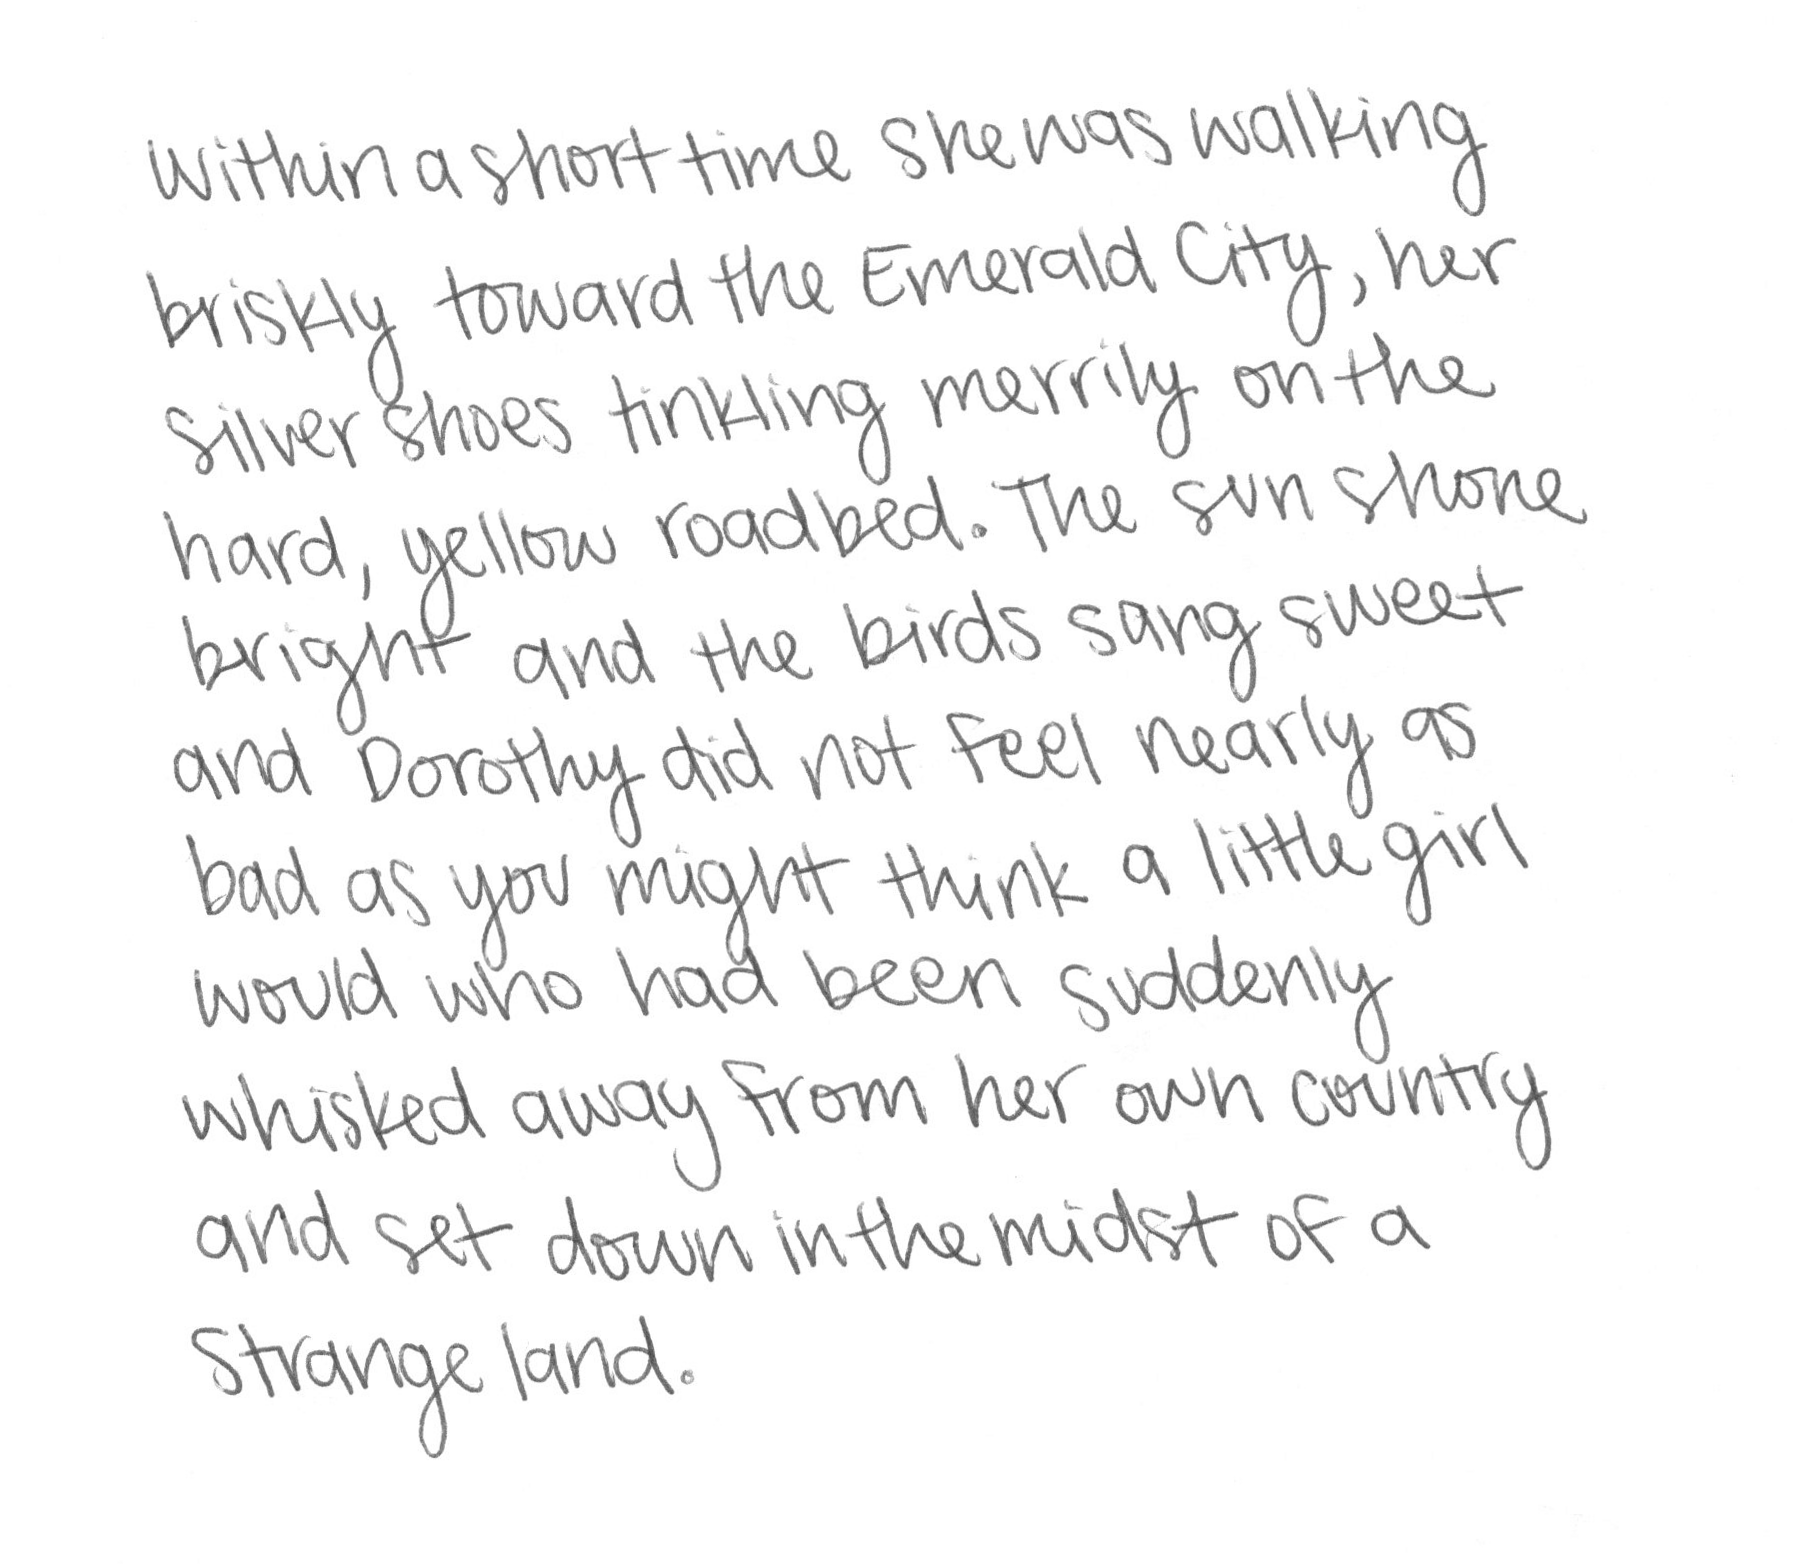 Within a short time she was walking
briskly toward the Emerald City, her
silver shoes tinkling merrily on the
hard, yellow roadbed. The sun shone
bright and the birds sang sweet
and Dorothy did not feel nearly as
bad as you might think a little girl
would who had been suddenly
whisked away from her own country
and set down in the midst of a
strange land.